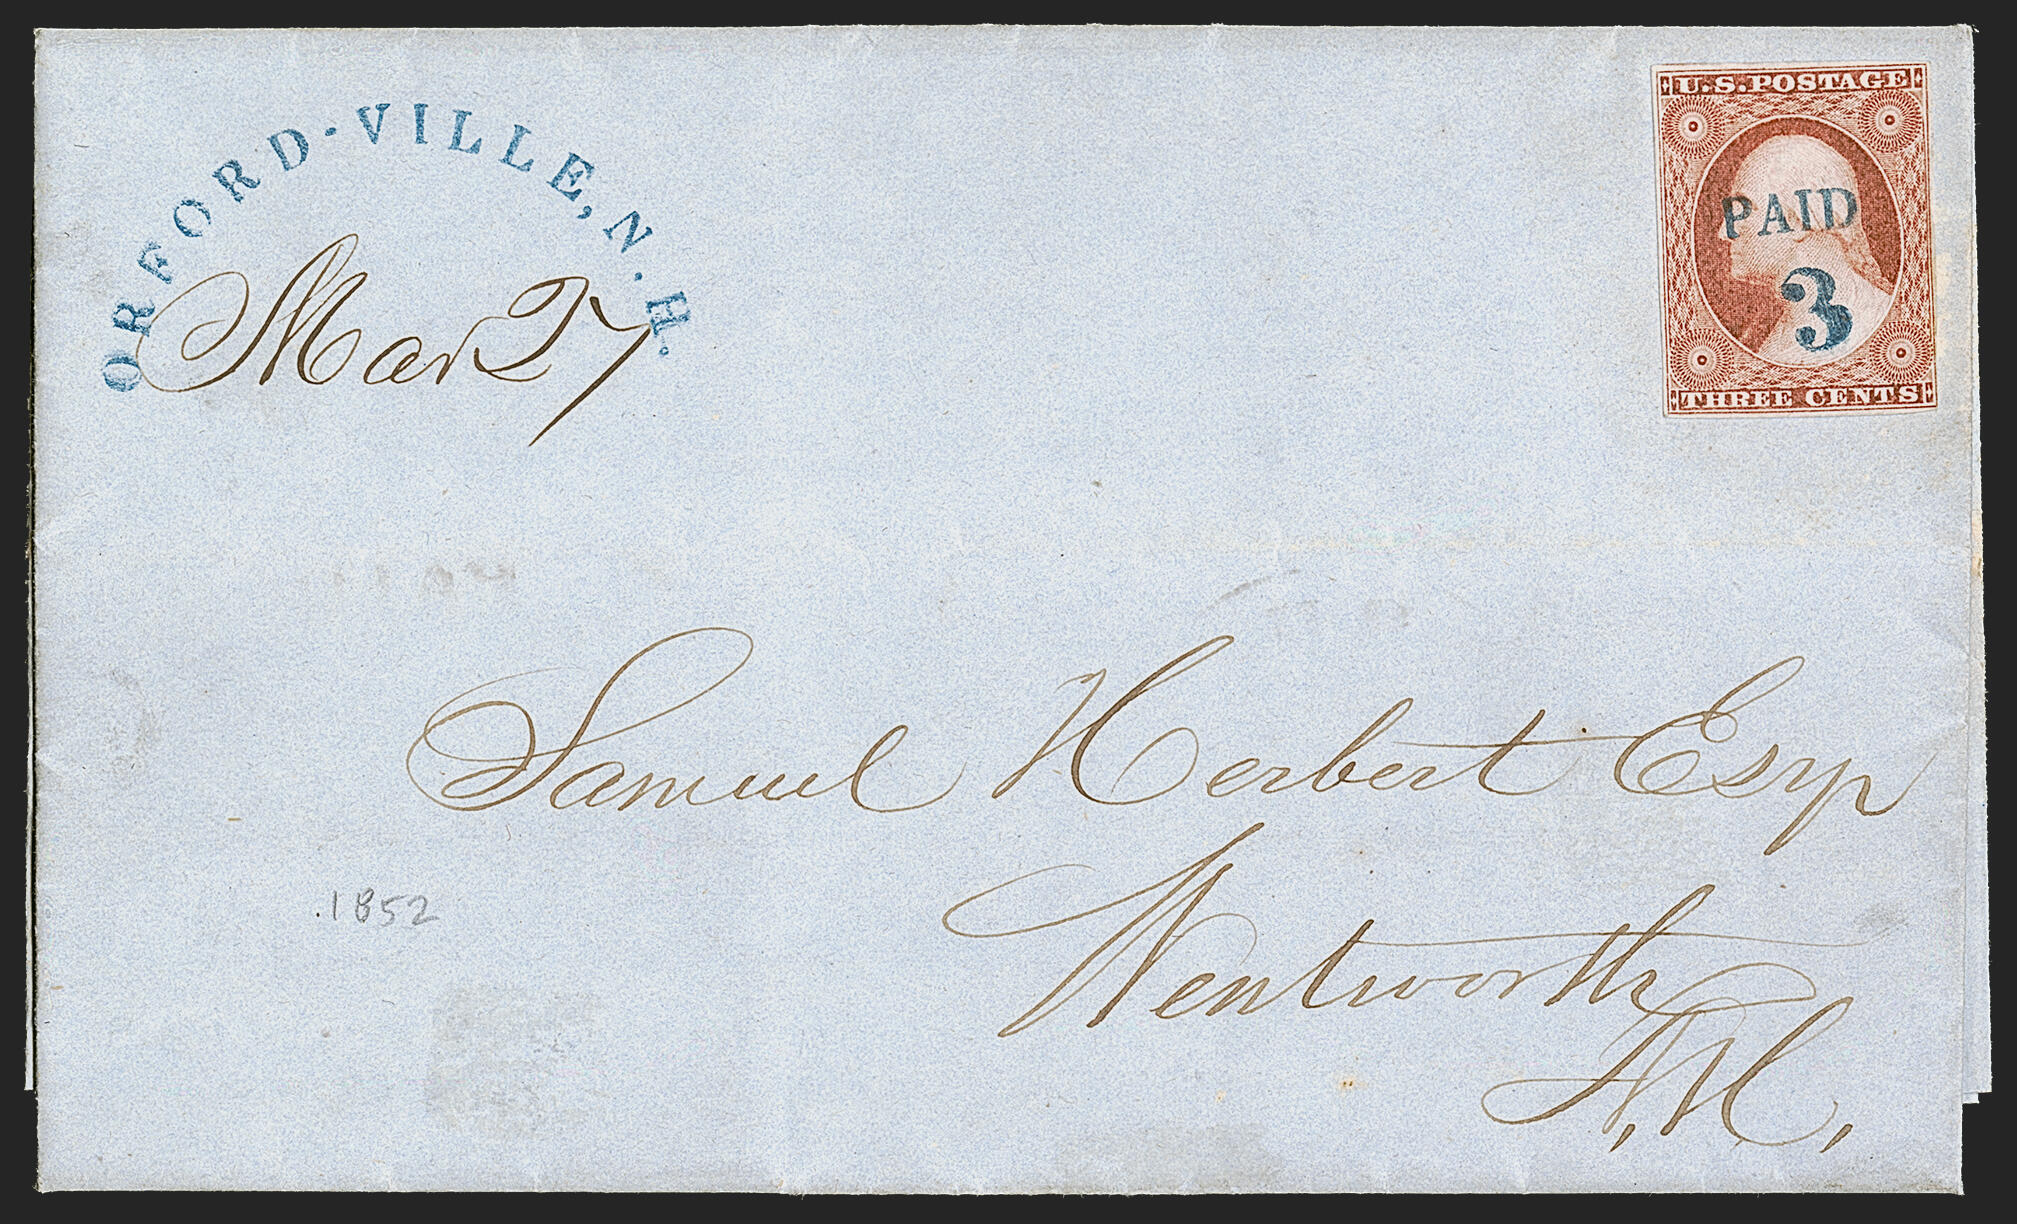 ORFORD-VILLE, N.H.
Mar 27
U.S. POSTAGE
PAID
3
THREE CENTS
Samuel Herbert Esqr
Wentworth
N.H.
1852